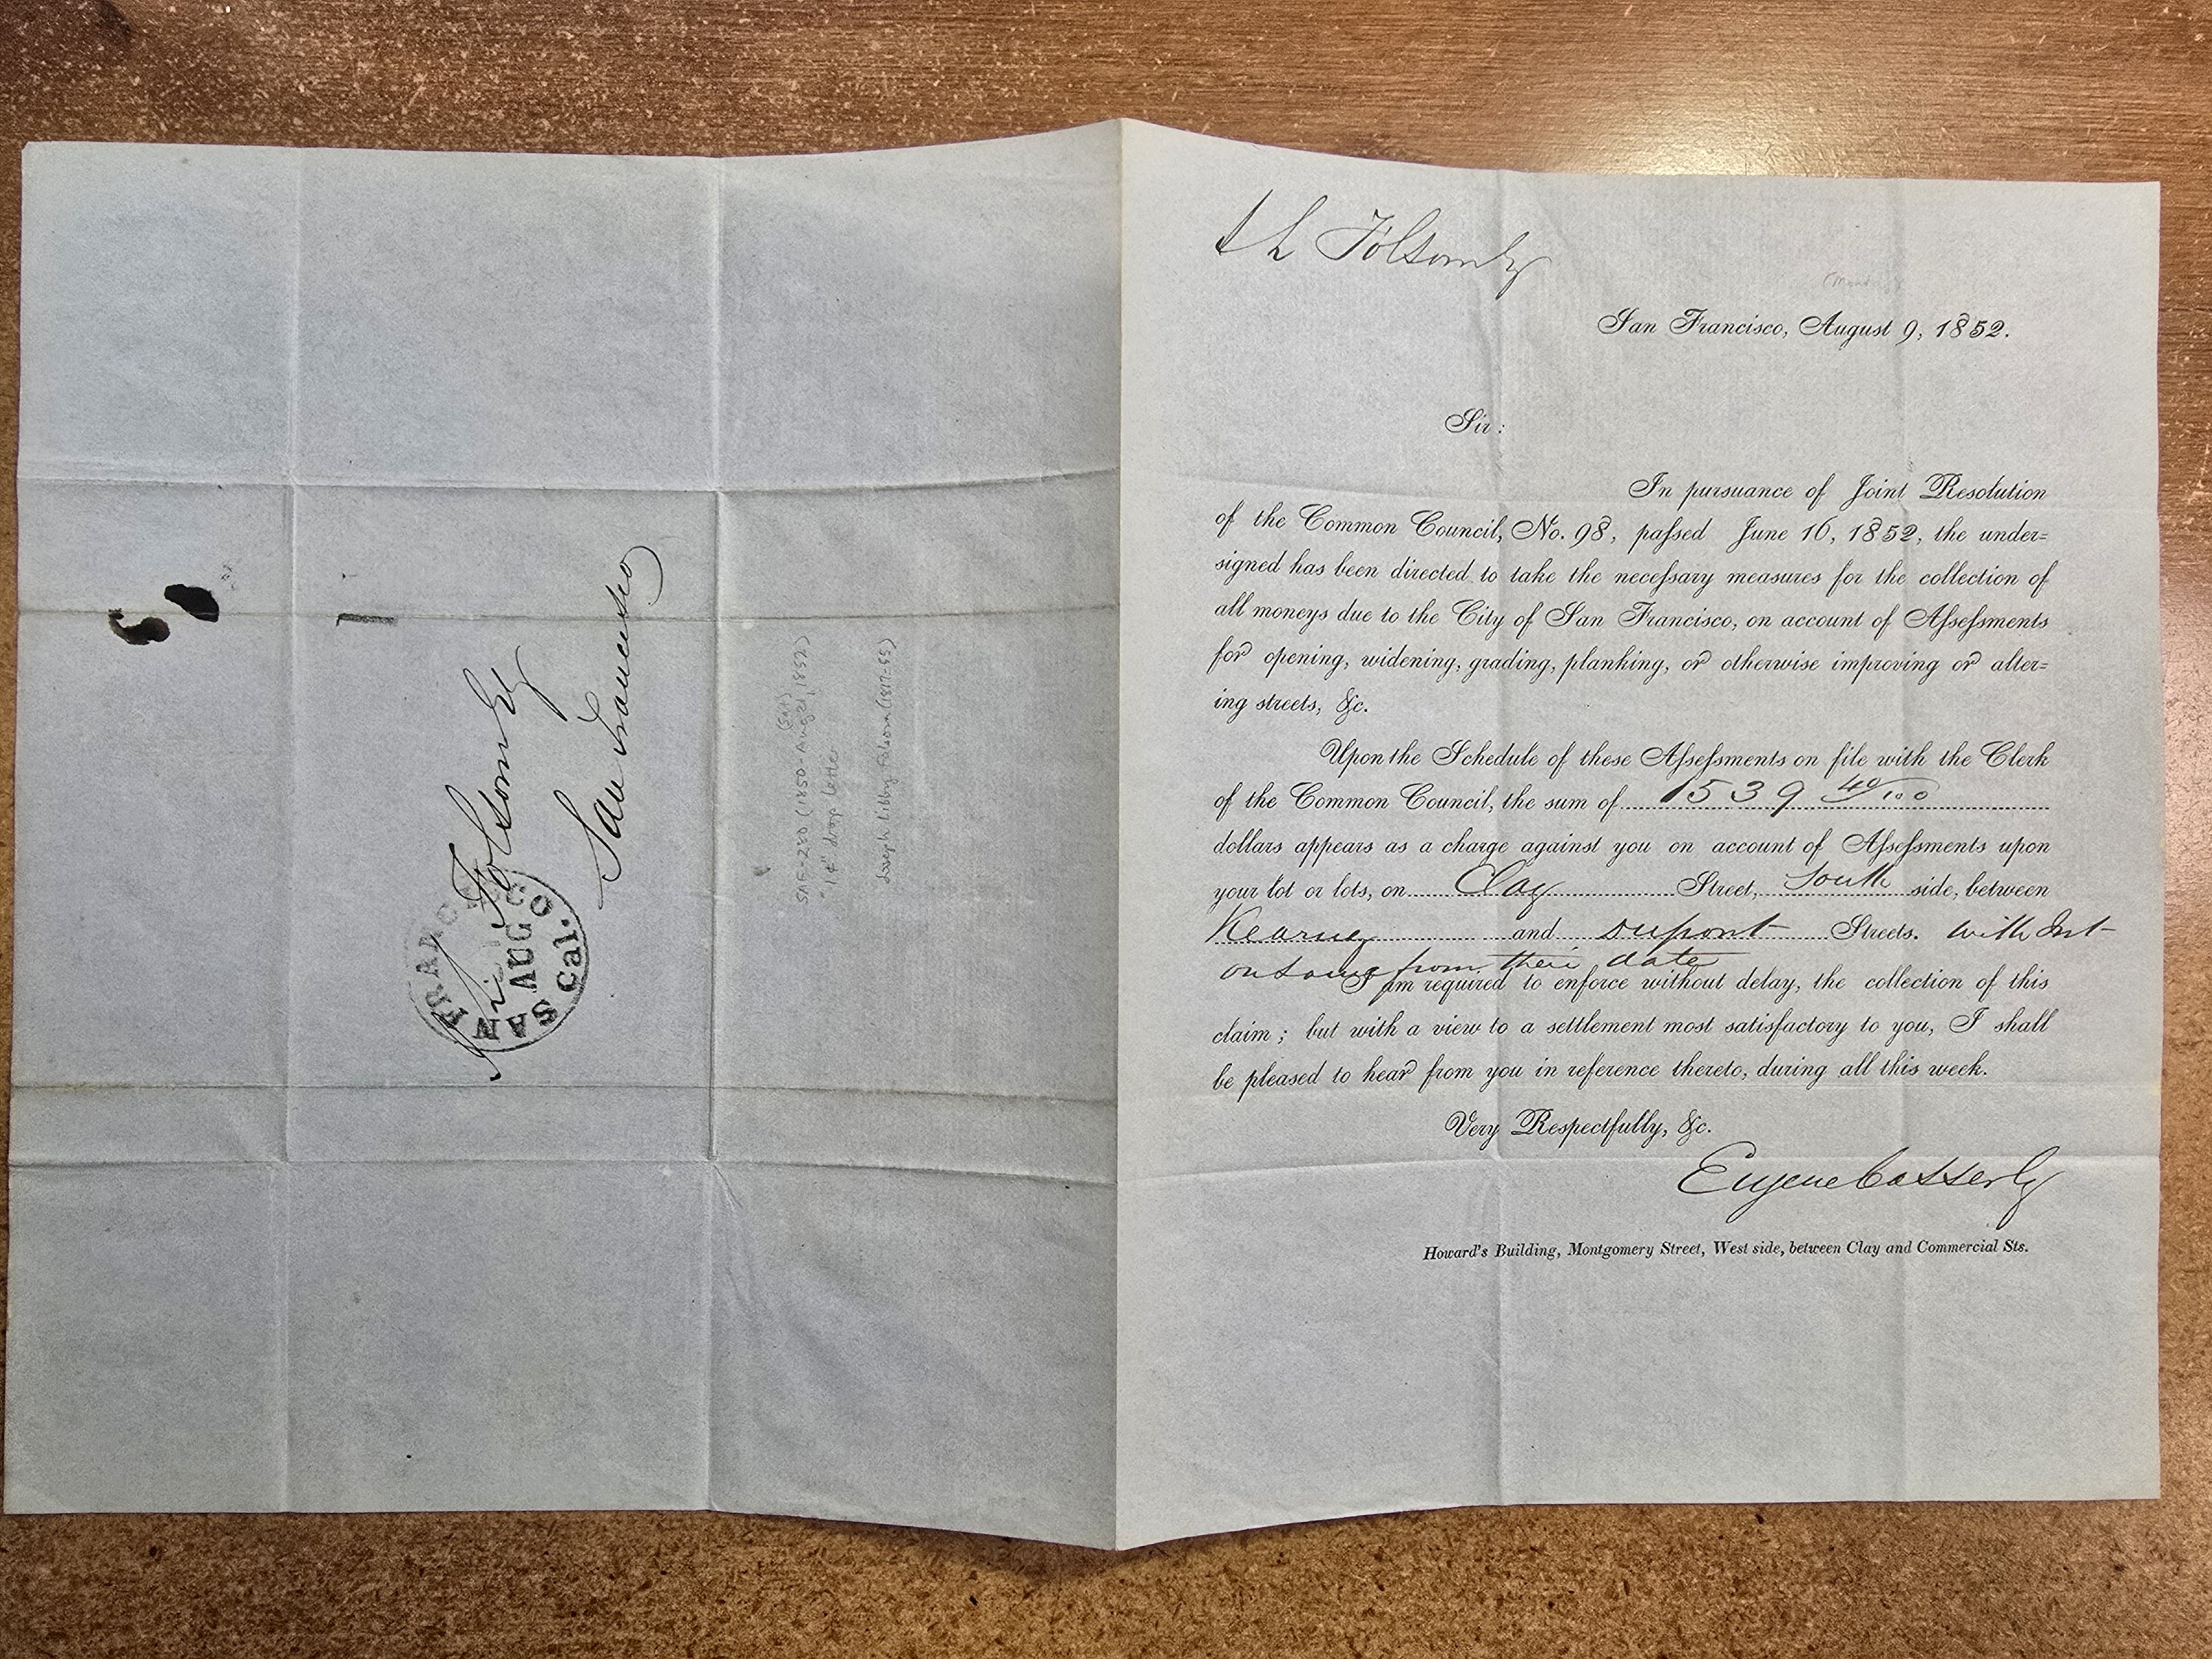 Folsom Esq
San Francisco
SAN FRANCISCO Cal.
AUG
SAF-280 (1850-Aug 21, 1852)
(Sat)
"1¢" drop letter
Joseph Libby Folsom (1817-55)
J L Folsom Esq
San Francisco, August 9, 1852.
Sir:
In pursuance of Joint Resolution
of the Common Council, No. 98, paſsed June 16, 1852, the under=
signed has been directed to take the neceſsary measures for the collection of
all moneys due to the City of San Francisco, on account of Aſseſsments
for opening, widening, grading, planking, or otherwise improving or alter=
ing streets, &c.
Upon the Schedule of these Aſseſsments on file with the Clerk
of the Common Council, the sum of 1539 40/100
dollars appears as a charge against you on account of Aſseſsments upon
your lot or lots, on Clay Street, South side, between
Kearney and Dupont Streets. with Int
on same from their date
I am required to enforce without delay, the collection of this
claim; but with a view to a settlement most satisfactory to you, I shall
be pleased to hear from you in reference thereto, during all this week.
Very Respectfully, &c.
Eugene Casserly
Howard's Building, Montgomery Street, West side, between Clay and Commercial Sts.